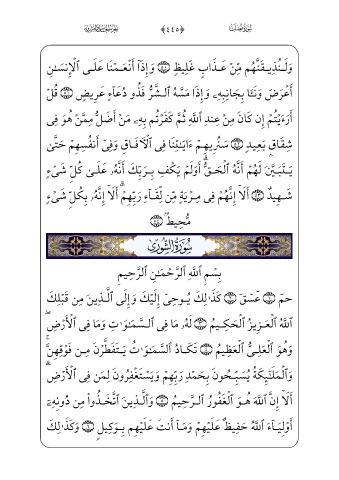 سُورَةُ فُصِّلَت ﴿٤٤٥﴾
وَلَنُذِيقَنَّهُم مِّنْ عَذَابٍ غَلِيظٍ ۝ وَإِذَآ أَنْعَمْنَا عَلَى ٱلْإِنسَـٰنِ
أَعْرَضَ وَنَـَٔا بِجَانِبِهِۦ وَإِذَا مَسَّهُ ٱلشَّرُّ فَذُو دُعَآءٍ عَرِيضٍ ۝ قُلْ
أَرَءَيْتُمْ إِن كَانَ مِنْ عِندِ ٱللَّهِ ثُمَّ كَفَرْتُم بِهِۦ مَنْ أَضَلُّ مِمَّنْ هُوَ فِى
شِقَاقٍۭ بَعِيدٍ ۝ سَنُرِيهِمْ ءَايَـٰتِنَا فِى ٱلْـَٔافَاقِ وَفِىٓ أَنفُسِهِمْ حَتَّىٰ
يَتَبَيَّنَ لَهُمْ أَنَّهُ ٱلْحَقُّ ۗ أَوَلَمْ يَكْفِ بِرَبِّكَ أَنَّهُۥ عَلَىٰ كُلِّ شَىْءٍ
شَهِيدٌ ۝ أَلَآ إِنَّهُمْ فِى مِرْيَةٍ مِّن لِّقَآءِ رَبِّهِمْ ۗ أَلَآ إِنَّهُۥ بِكُلِّ شَىْءٍ
مُّحِيطٌۢ ۝
سُورَةُ الشُّورَىٰ
بِسْمِ ٱللَّهِ ٱلرَّحْمَـٰنِ ٱلرَّحِيمِ
حمٓ ۝ عٓسٓقٓ ۝ كَذَٰلِكَ يُوحِىٓ إِلَيْكَ وَإِلَى ٱلَّذِينَ مِن قَبْلِكَ
ٱللَّهُ ٱلْعَزِيزُ ٱلْحَكِيمُ ۝ لَهُۥ مَا فِى ٱلسَّمَـٰوَٰتِ وَمَا فِى ٱلْأَرْضِ ۖ
وَهُوَ ٱلْعَلِىُّ ٱلْعَظِيمُ ۝ تَكَادُ ٱلسَّمَـٰوَٰتُ يَتَفَطَّرْنَ مِن فَوْقِهِنَّ ۚ
وَٱلْمَلَـٰٓئِكَةُ يُسَبِّحُونَ بِحَمْدِ رَبِّهِمْ وَيَسْتَغْفِرُونَ لِمَن فِى ٱلْأَرْضِ ۗ
أَلَآ إِنَّ ٱللَّهَ هُوَ ٱلْغَفُورُ ٱلرَّحِيمُ ۝ وَٱلَّذِينَ ٱتَّخَذُوا۟ مِن دُونِهِۦٓ
أَوْلِيَآءَ ٱللَّهُ حَفِيظٌ عَلَيْهِمْ وَمَآ أَنتَ عَلَيْهِم بِوَكِيلٍ ۝ وَكَذَٰلِكَ